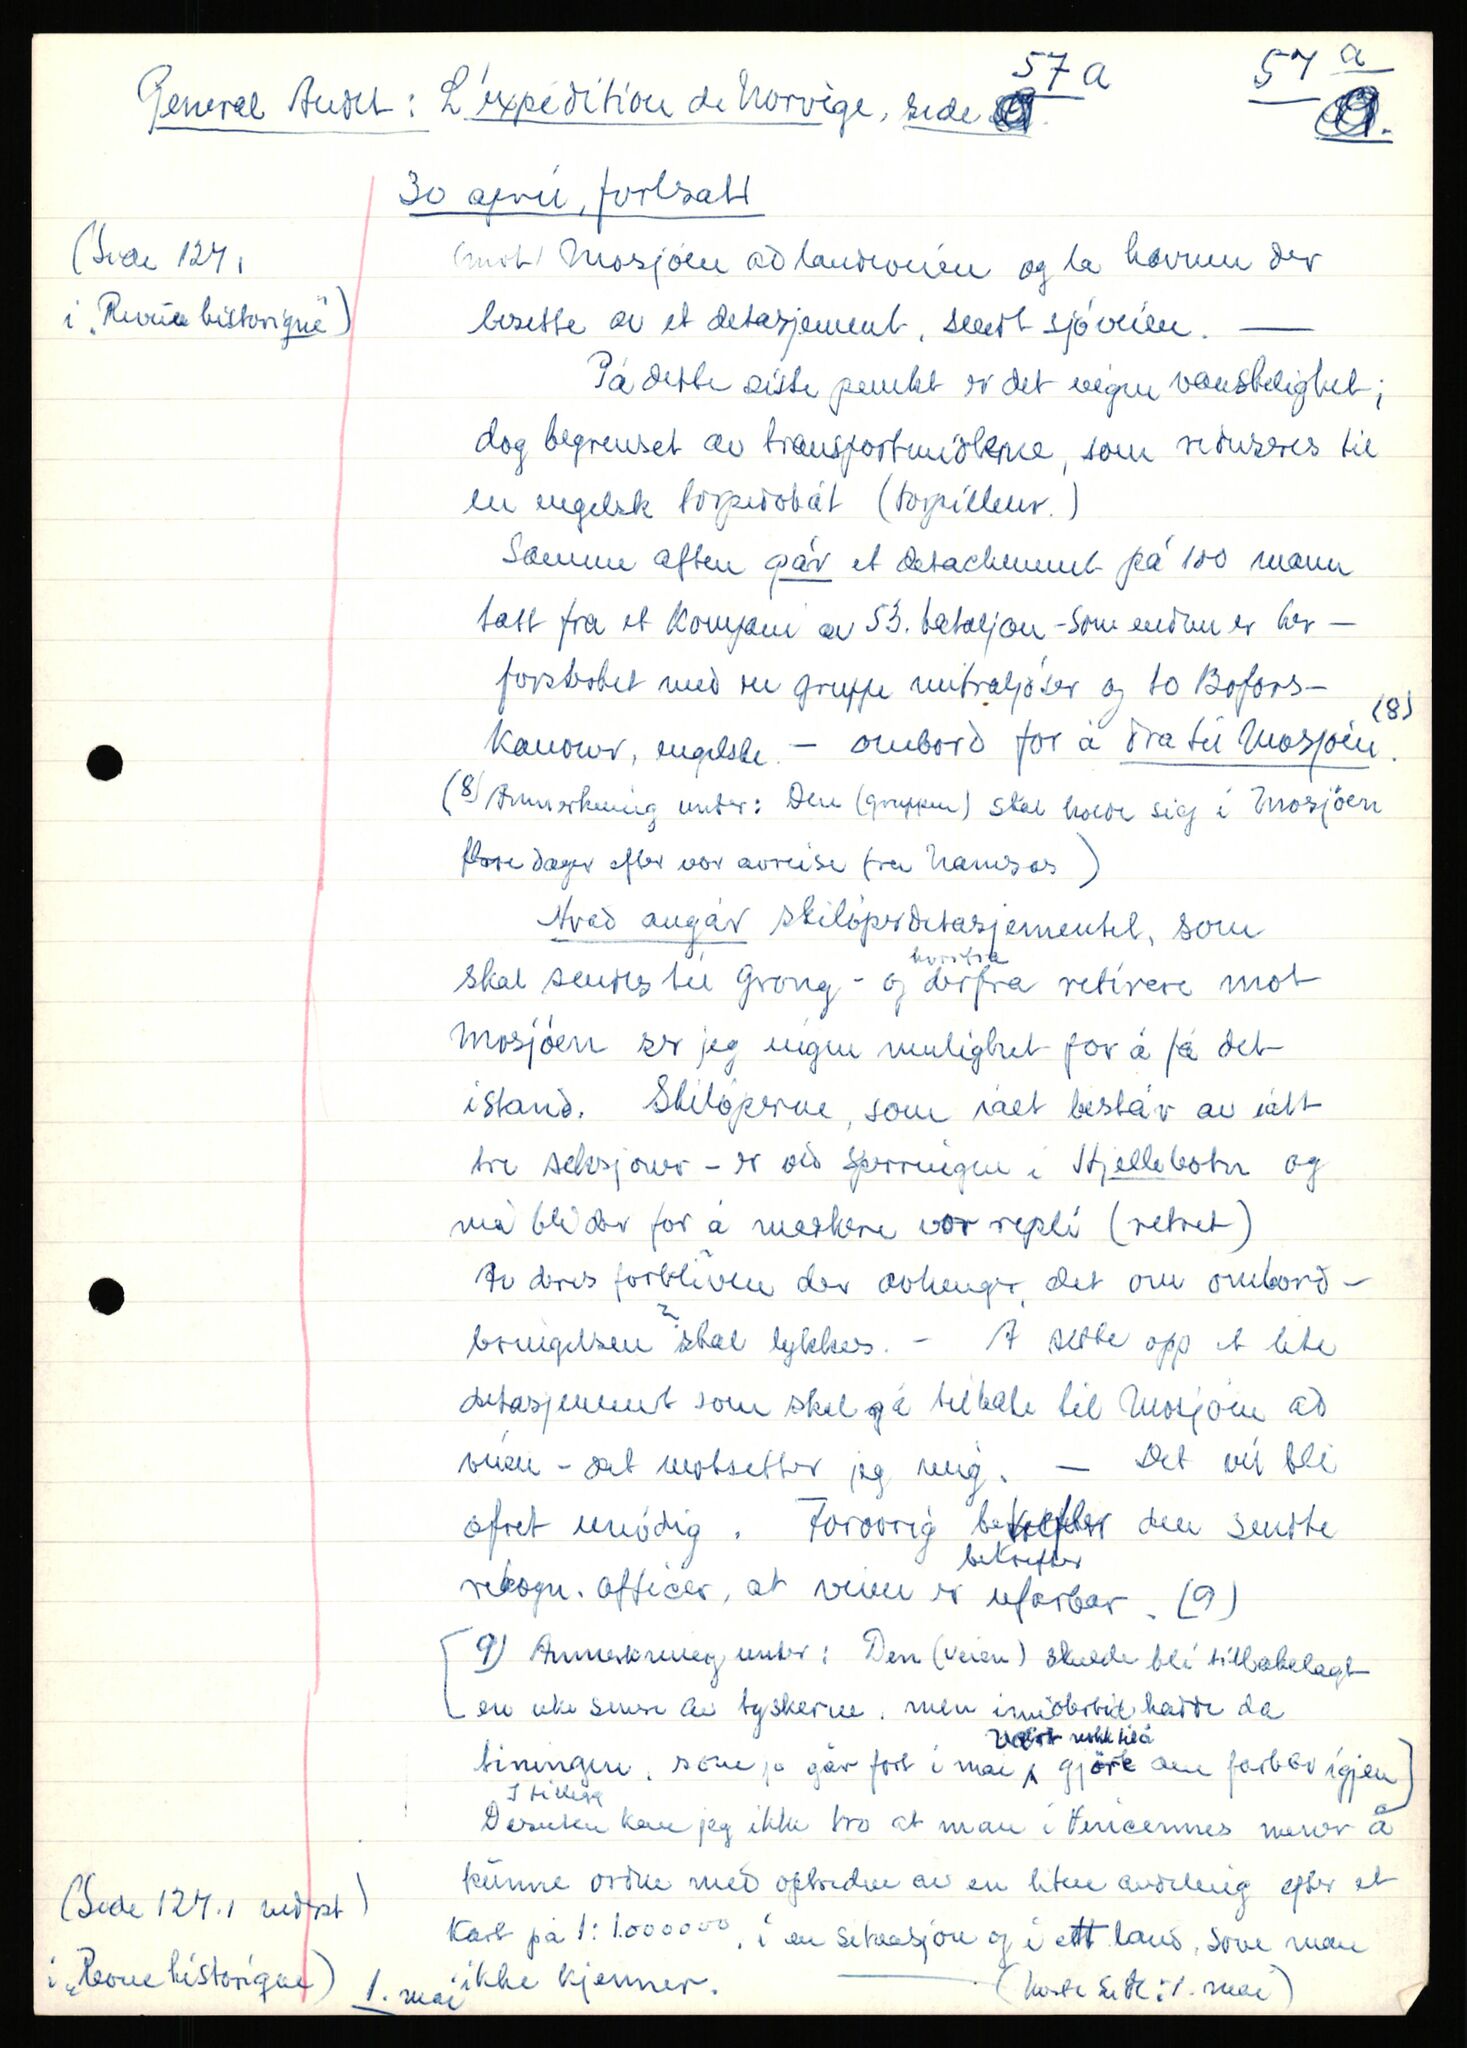 57 a
57 a
General Audet: L'expédition de Norvège, side
30 april, fortsatt
(Side 127,
i "Revue historique")
(mot) Mosjöen ad landeveien og la havnen der
besette av et detasjement, sendt sjöveien. —
På dette siste punkt er det ingen vanskelighet;
dog begrenset av transportmidlerne, som reduseres til
en engelsk torpedobåt (torpilleur.)
Samme aften går et detachement på 100 mann
tatt fra et Kompani av 53. bataljon - som endnu er her —
forsterket med en gruppe mitraljöser og to Bofors-
Kanoner, engelske. — ombord for å dra til Mosjöen. (8)
(8) Anmerkning under: Den (gruppen) skal holde sig i Mosjöen
flere dager efter vor avreise fra Namsos)
Hvad angår skilöperdetasjementet, som
skal sendes til Grong - og derfra retirere mot
horifra
Mosjöen ser jeg ingen mulighet for å få det
istand. Skilöperne, som ialt består av ialt
tre seksjoner - er ved sperringen i Hjellebotn og
må bli der for å maskere vor repli (retret)
Av deres forbliven der avhenger det om ombord-
bringelsen skal lykkes. — Å sette opp et lite
detasjement som skal gå tilbake til Mosjöen ad
veien - det motsetter jeg mig. — Det vil bli
ofret unödig. Forövrig bekrefter den sendte
bekrefter
rekogn. officer, at veien er ufarbar. (9)
9) Anmerkning under: Den (veien) skulde bli tilbakelagt
en uke senere av tyskerne, men imidlertid hadde da
tiningen, som jo går fort i mai, gjöre den farbar igjen]
vært nokk til å
I tillegg
Desuten kan jeg ikke tro at man i Vincennes mener å
kunne ordne med optreden av en liten avdeling efter et
Kart på 1:1.000000, i en situasjon og i ett land, som man
ikke kjenner.
(Side 127, nederst)
i "Revue historique)
1. mai
(neste side: 1. mai)